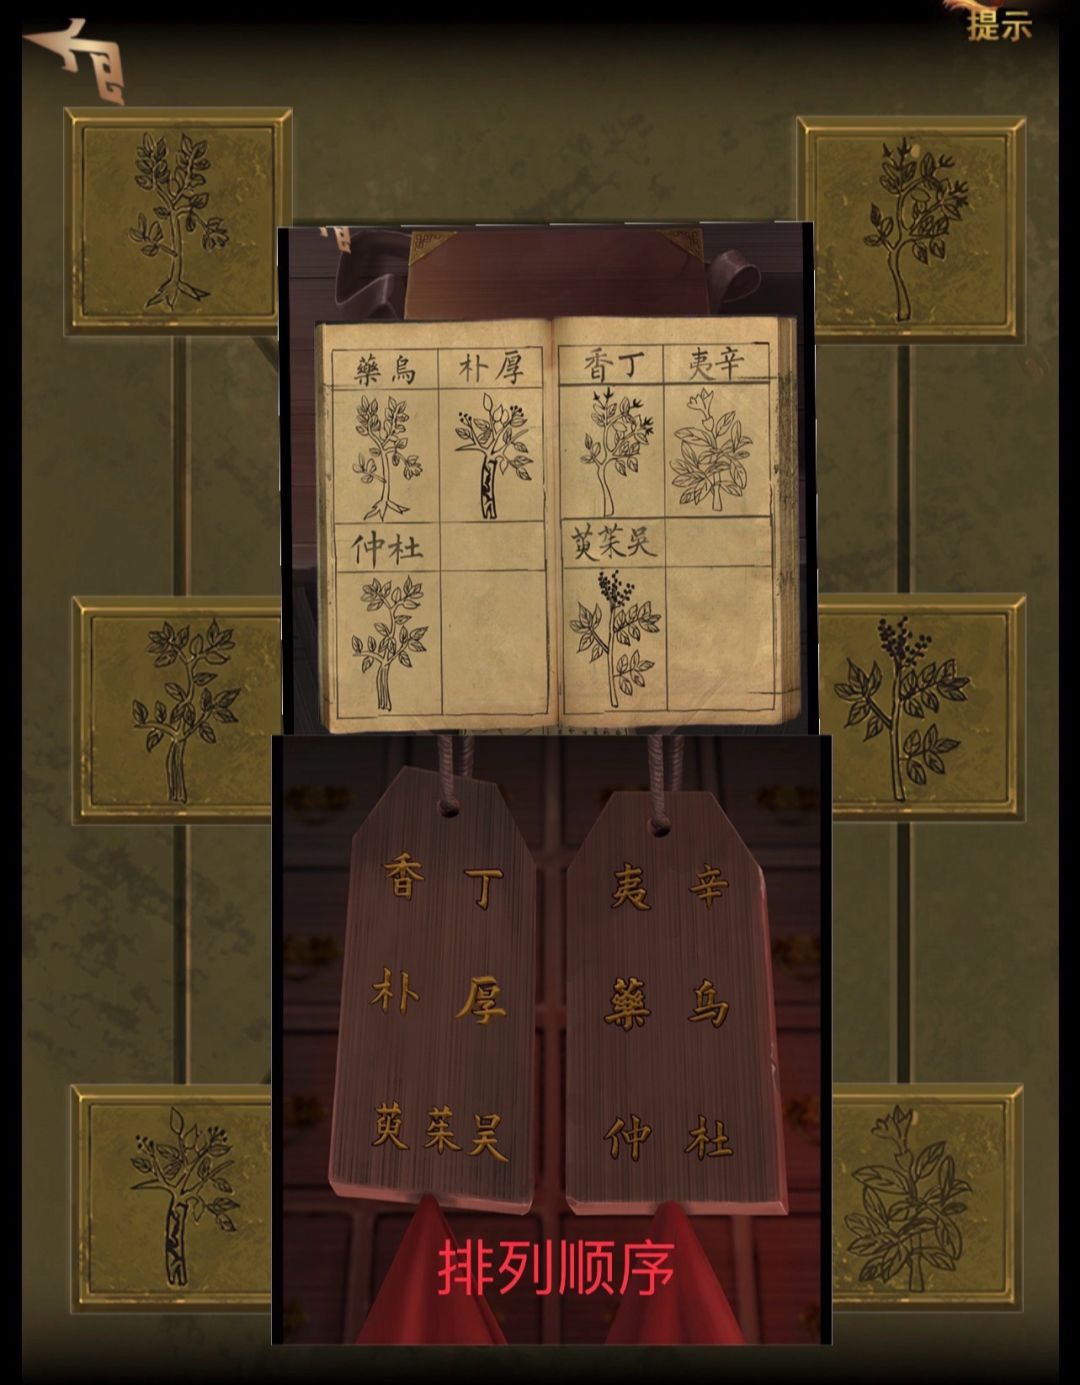 提示
辛夷 丁香 厚朴 烏藥
吴茱萸 杜仲
辛夷
乌藥
杜仲
丁香
厚朴
吴茱萸
排列顺序